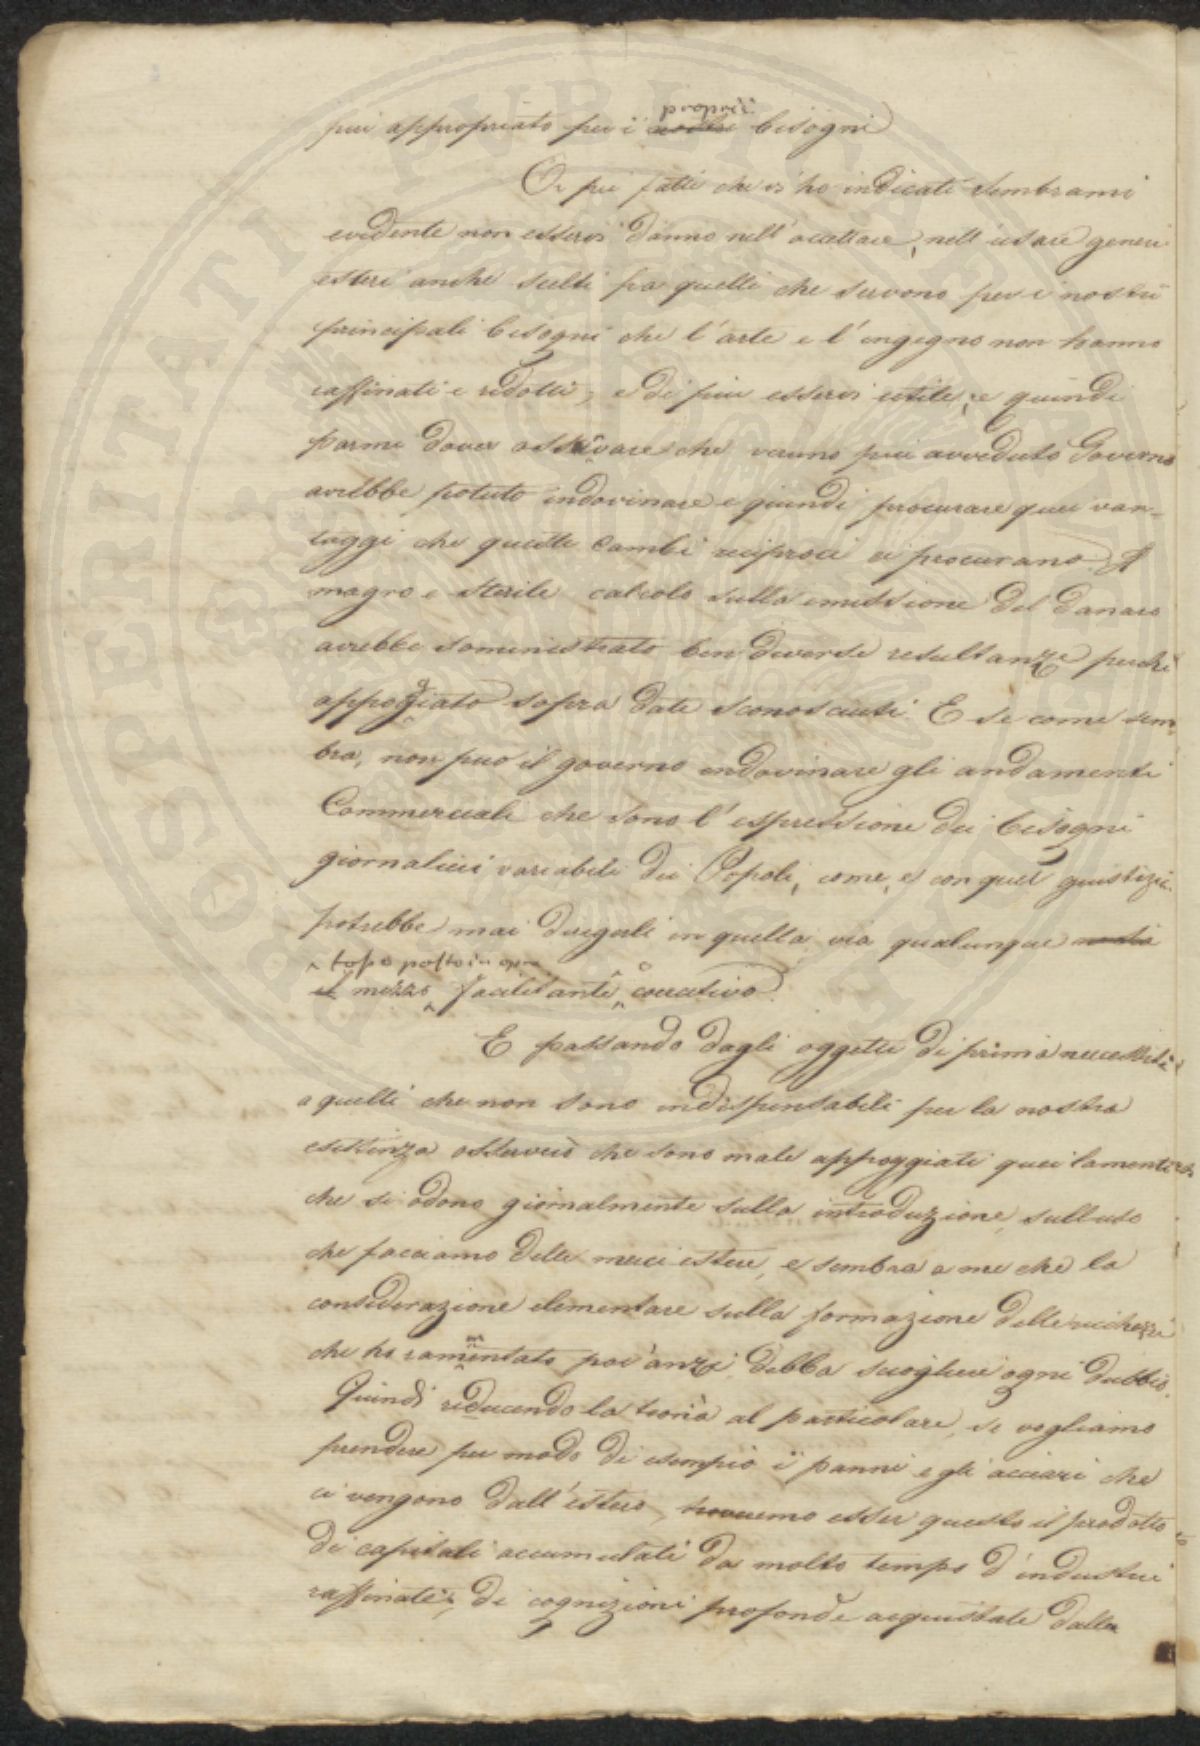 piu appropriato per i nostri proprii bisogni
Or pei fatti che vi ho indicati sembrami
evidente non esservi danno nell'accettare, nell'usare generi
esteri anche scelti fra quelli che servono per i nostri
principali bisogni che l'arte e l'ingegno non hanno
raffinati e ridotti, e di piu esservi utile, e quindi
parmi dover osservare che veruno piu avveduto Governo
avrebbe potuto indovinare e quindi procurare quei van-
taggi che questi cambi reciproci ci procurano. Il
magro e sterile calcolo sulla emissione del danaro
avrebbe somministrato ben diverse resultanze perchè
appoggiato sopra date sconosciuti. E se come sem-
bra, non può il governo indovinare gli andamenti
Commerciali che sono l'espressione dei bisogni
giornalieri variabili dei Popoli, come, e con qual giustizia
potrebbe mai dirigerli in quella via qualunque
il mezzo tosse posto in opra facilitante o coercitivo.
E passando dagli oggetti di prima necessità
a quelli che non sono indispensabili per la nostra
esistenza osserverò che sono male appoggiati quei lamenti
che si odono giornalmente sulla introduzione, sull'uso
che facciamo delle merci estere, e sembra a me che la
considerazione elementare sulla formazione delle ricchezze
che ho rammentato poc'anzi debba sciogliere ogni dubbio.
Quindi riducendo la teoria al particolare, se vogliamo
prendere per modo di esempio i panni e gli acciari che
ci vengono dall'estero, troveremo esser questo il prodotto
di capitali accumulati da molto tempo d'industrie
raffinate, di cognizioni profonde acquistate dalla
PROSPERITATI PUBLICAE